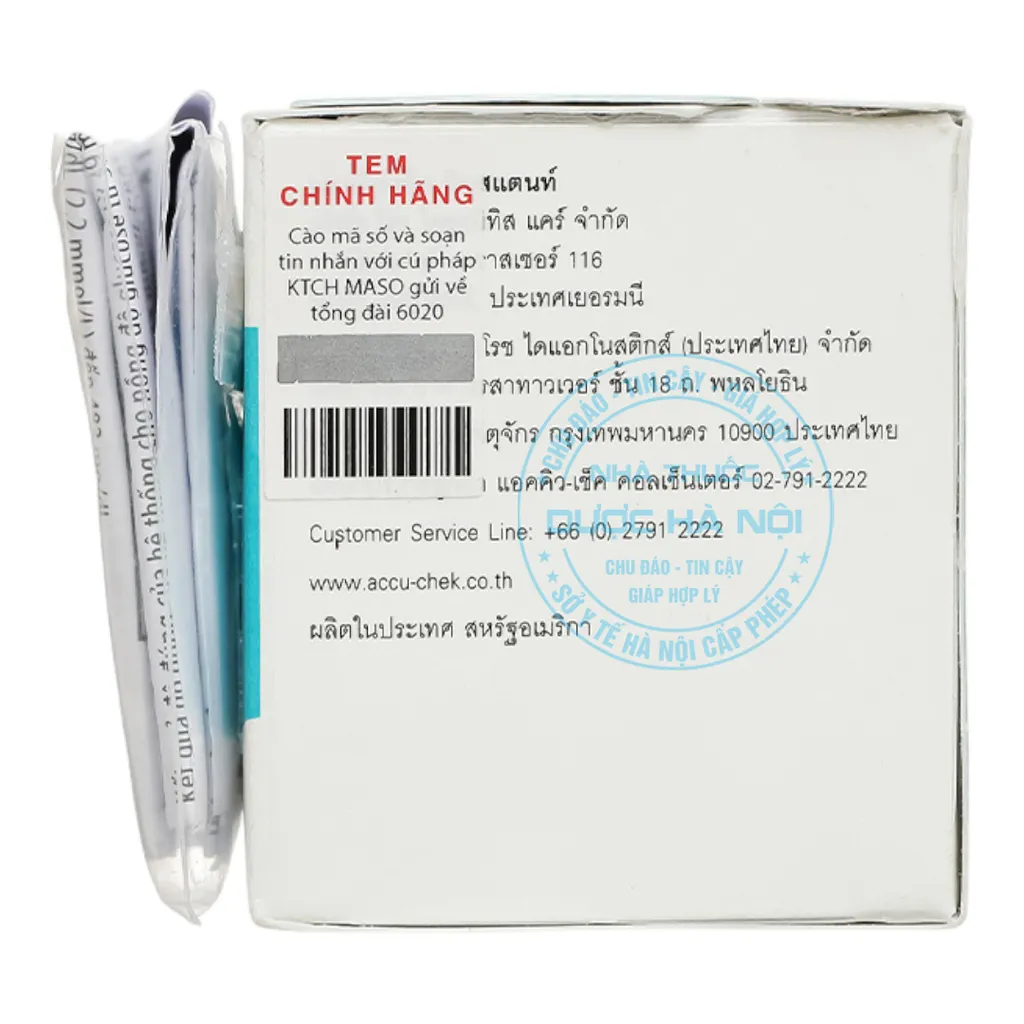 TEM
CHÍNH HÃNG
Cào mã số và soạn
tin nhắn với cú pháp
KTCH MASO gửi về
tổng đài 6020
สแตนท์
ทิส แคร์ จำกัด
าสเซอร์ 116
ประเทศเยอรมนี
โรช ไดแอกโนสติกส์ (ประเทศไทย) จำกัด
รสาทาวเวอร์ ชั้น 18 ถ. พหลโยธิน
ตุจักร กรุงเทพมหานคร 10900 ประเทศไทย
แอคคิว-เช็ค คอลเซ็นเตอร์ 02-791-2222
Customer Service Line: +66 (0) 2791 2222
www.accu-chek.co.th
ผลิตในประเทศ สหรัฐอเมริกา
CHU ĐÁO - TIN CẬY - GIÁ HỢP LÝ
NHÀ THUỐC
DƯỢC HÀ NỘI
CHU ĐÁO - TIN CẬY
GIÁP HỢP LÝ
SỞ Y TẾ HÀ NỘI CẤP PHÉP
của hệ thống cho nồng độ glucose